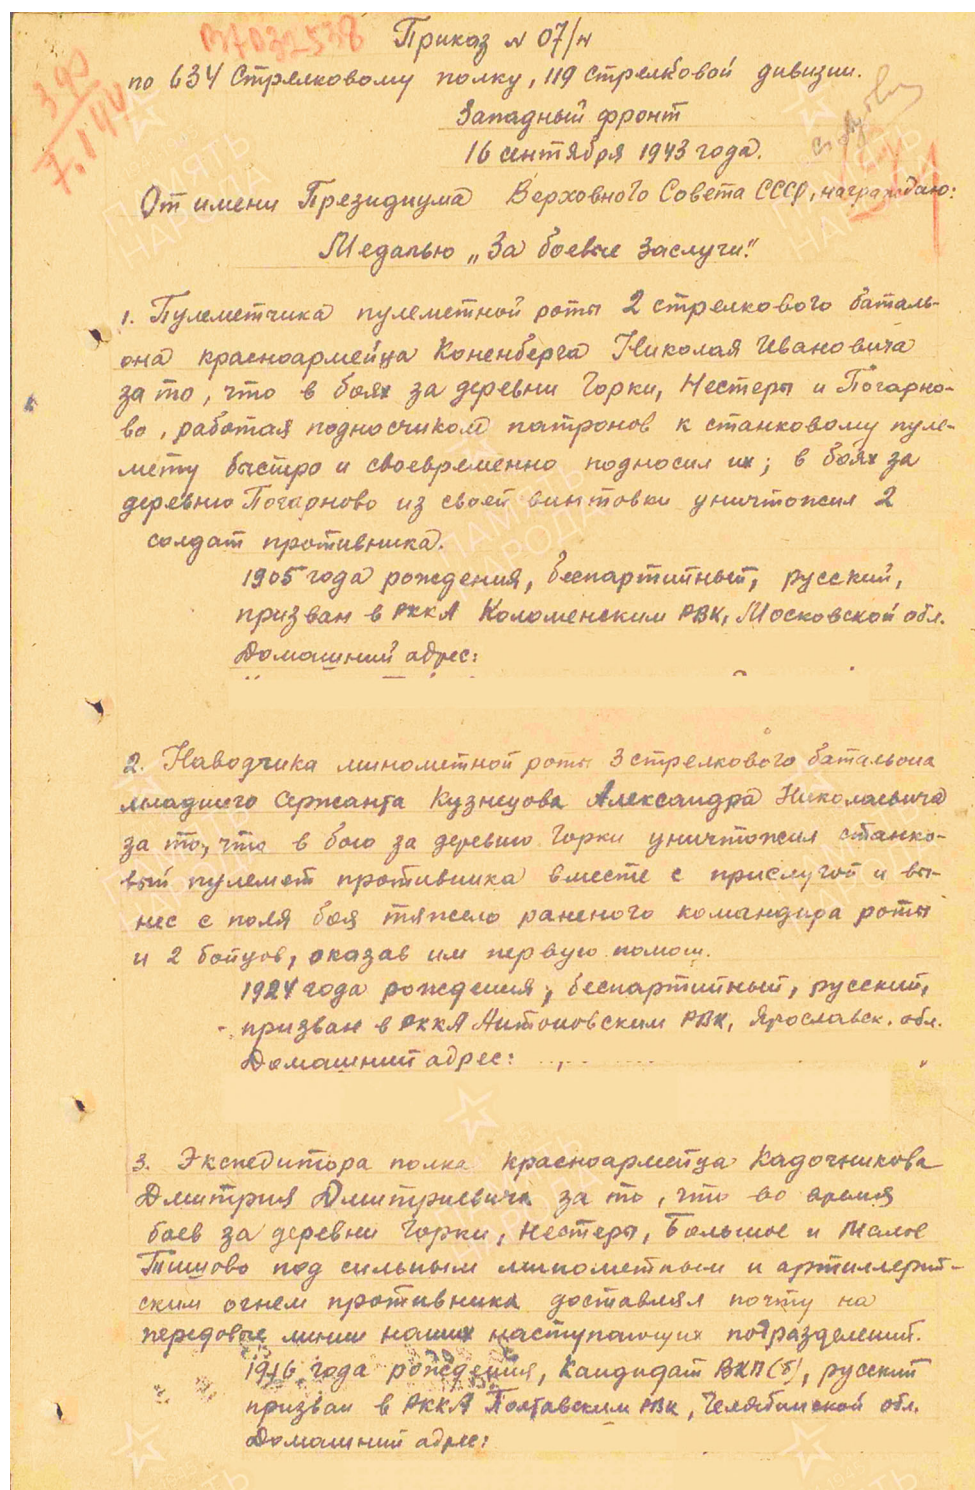 Приказ № 07/н
по 634 Стрелковому полку, 119 стрелковой дивизии.
Западный фронт
16 сентября 1943 года.
От имени Президиума Верховного Совета СССР, награждаю:
Медалью „За боевые заслуги".
1. Пулеметчика пулеметной роты 2 стрелкового баталь-
она красноармейца Коненберга Николая Ивановича
за то, что в боях за деревни Горки, Нестеры и Погарно-
во, работая подносчиком патронов к станковому пуле-
мету быстро и своевременно подносил их; в боях за
деревню Погарново из своей винтовки уничтожил 2
солдат противника.
1905 года рождения, беспартийный, русский,
призван в РККА Коломенским РВК, Московской обл.
Домашний адрес:
2. Наводчика минометной роты 3 стрелкового батальона
младшего сержанта Кузнецова Александра Николаевича
за то, что в бою за деревню Горки уничтожил станко-
вый пулемет противника вместе с прислугой и вы-
нес с поля боя тяжело раненого командира роты
и 2 бойцов, оказав им первую помощ.
1924 года рождения, беспартийный, русский,
призван в РККА Антоновским РВК, Ярославск. обл.
Домашний адрес:
3. Экспедитора полка красноармейца Кадочникова
Дмитрия Дмитриевича за то, что во время
боев за деревни Горки, Нестеры, Большое и Малое
Тишово под сильным минометным и артиллерий-
ским огнем противника доставлял почту на
передовые линии наших наступающих подразделений.
1916 года рождения, Кандидат ВКП(б), русский
призван в РККА Полтавским РВК, Челябинской обл.
Домашний адрес: